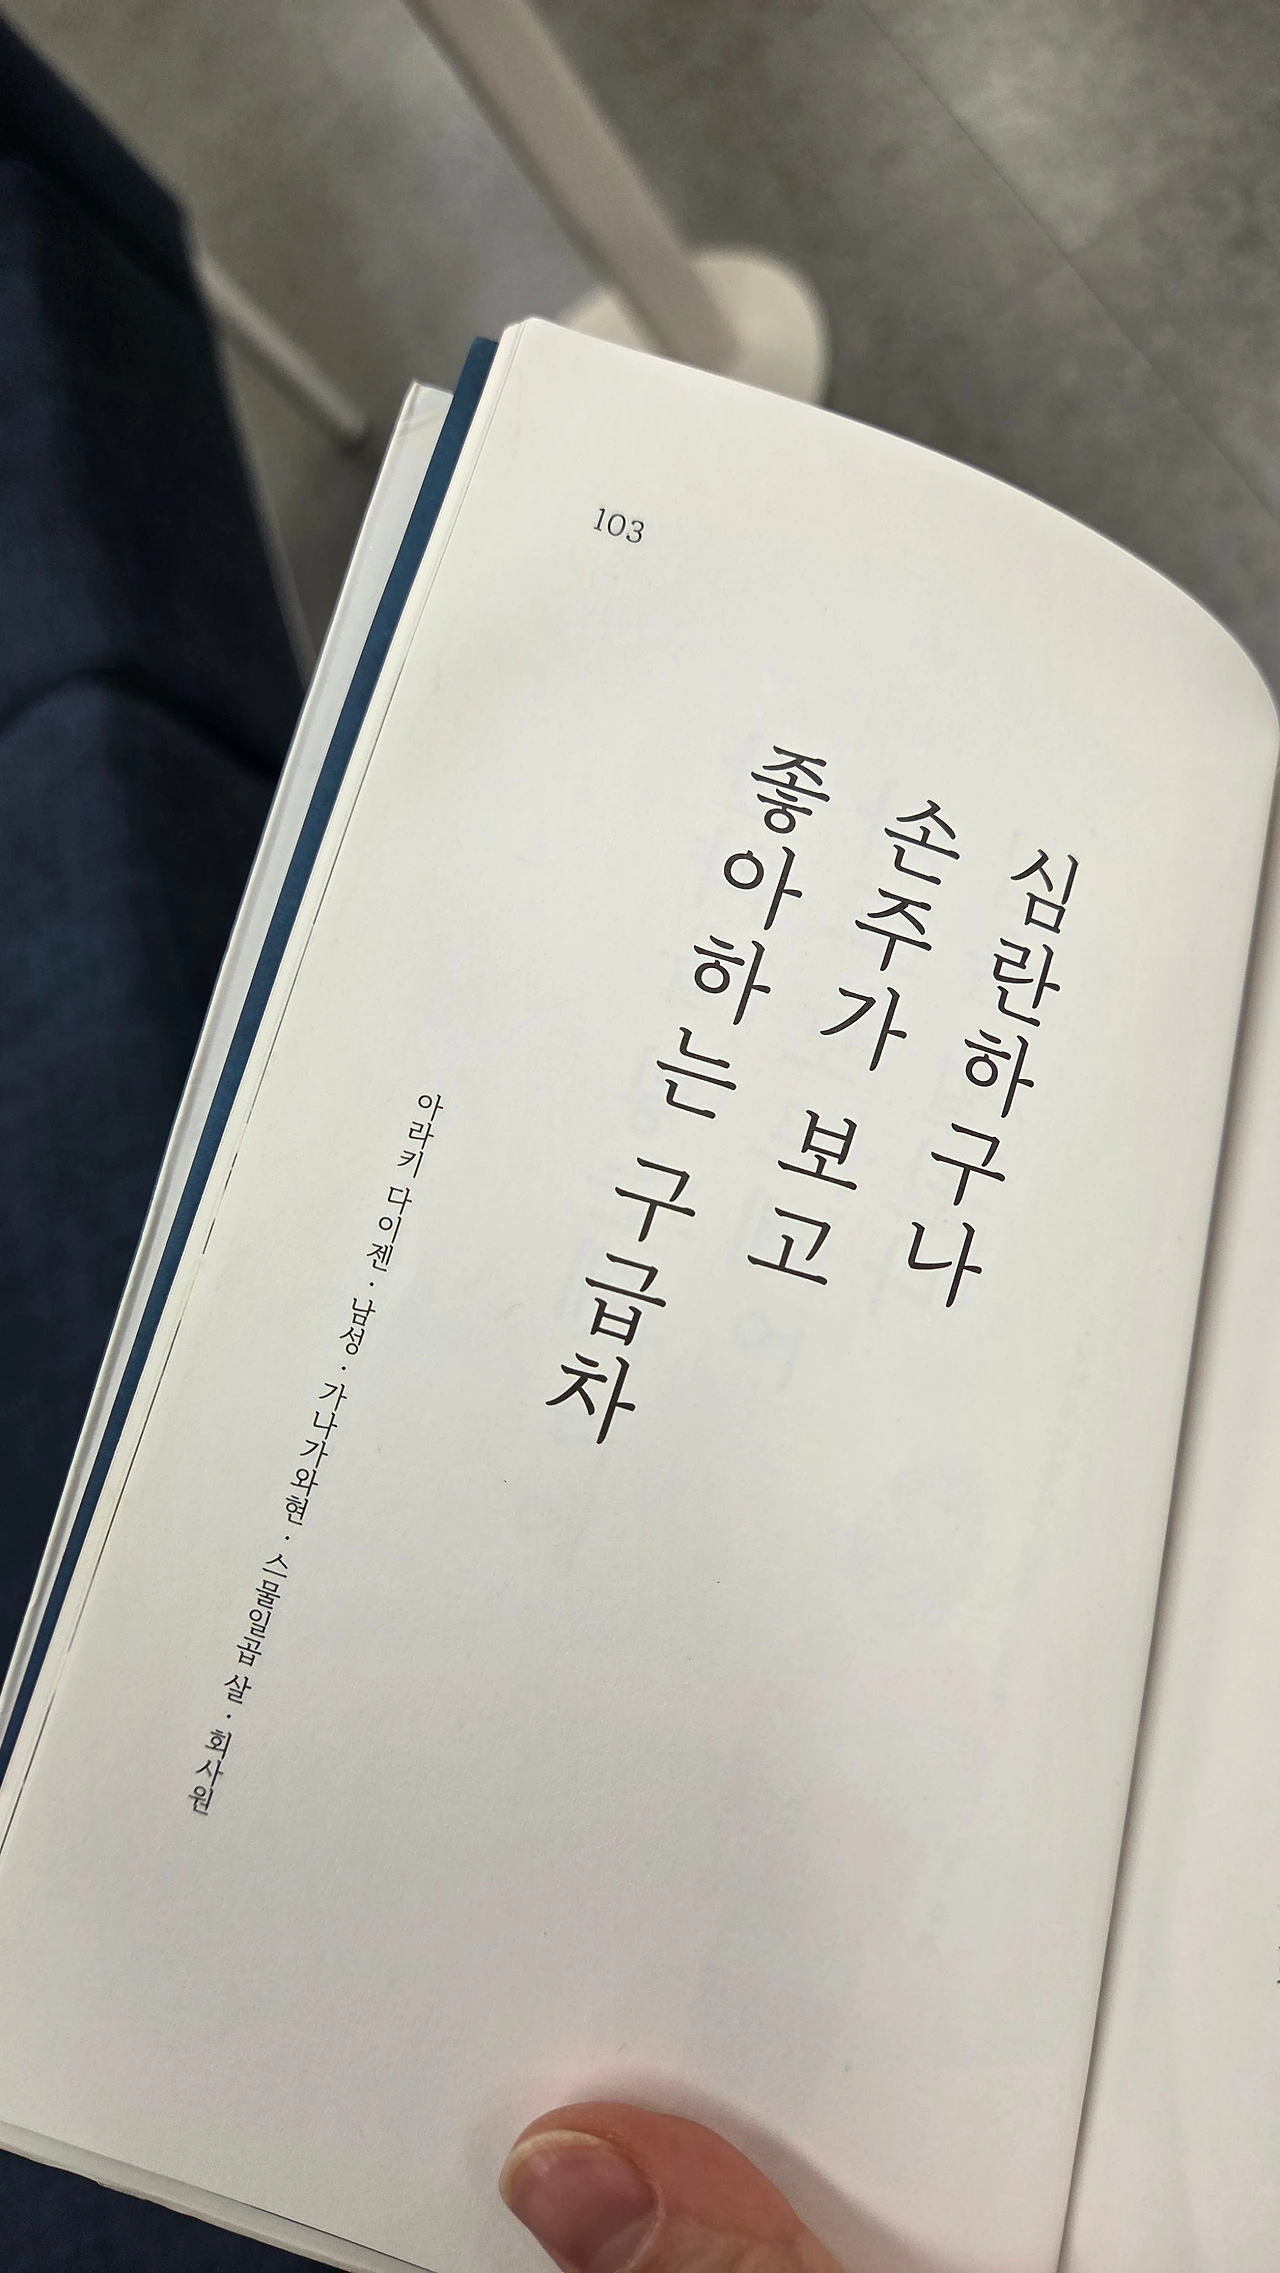 심란하구나
손주가 보고
좋아하는 구급차
아라키 다이젠·남성·가나가와현·스물일곱 살·회사원
103